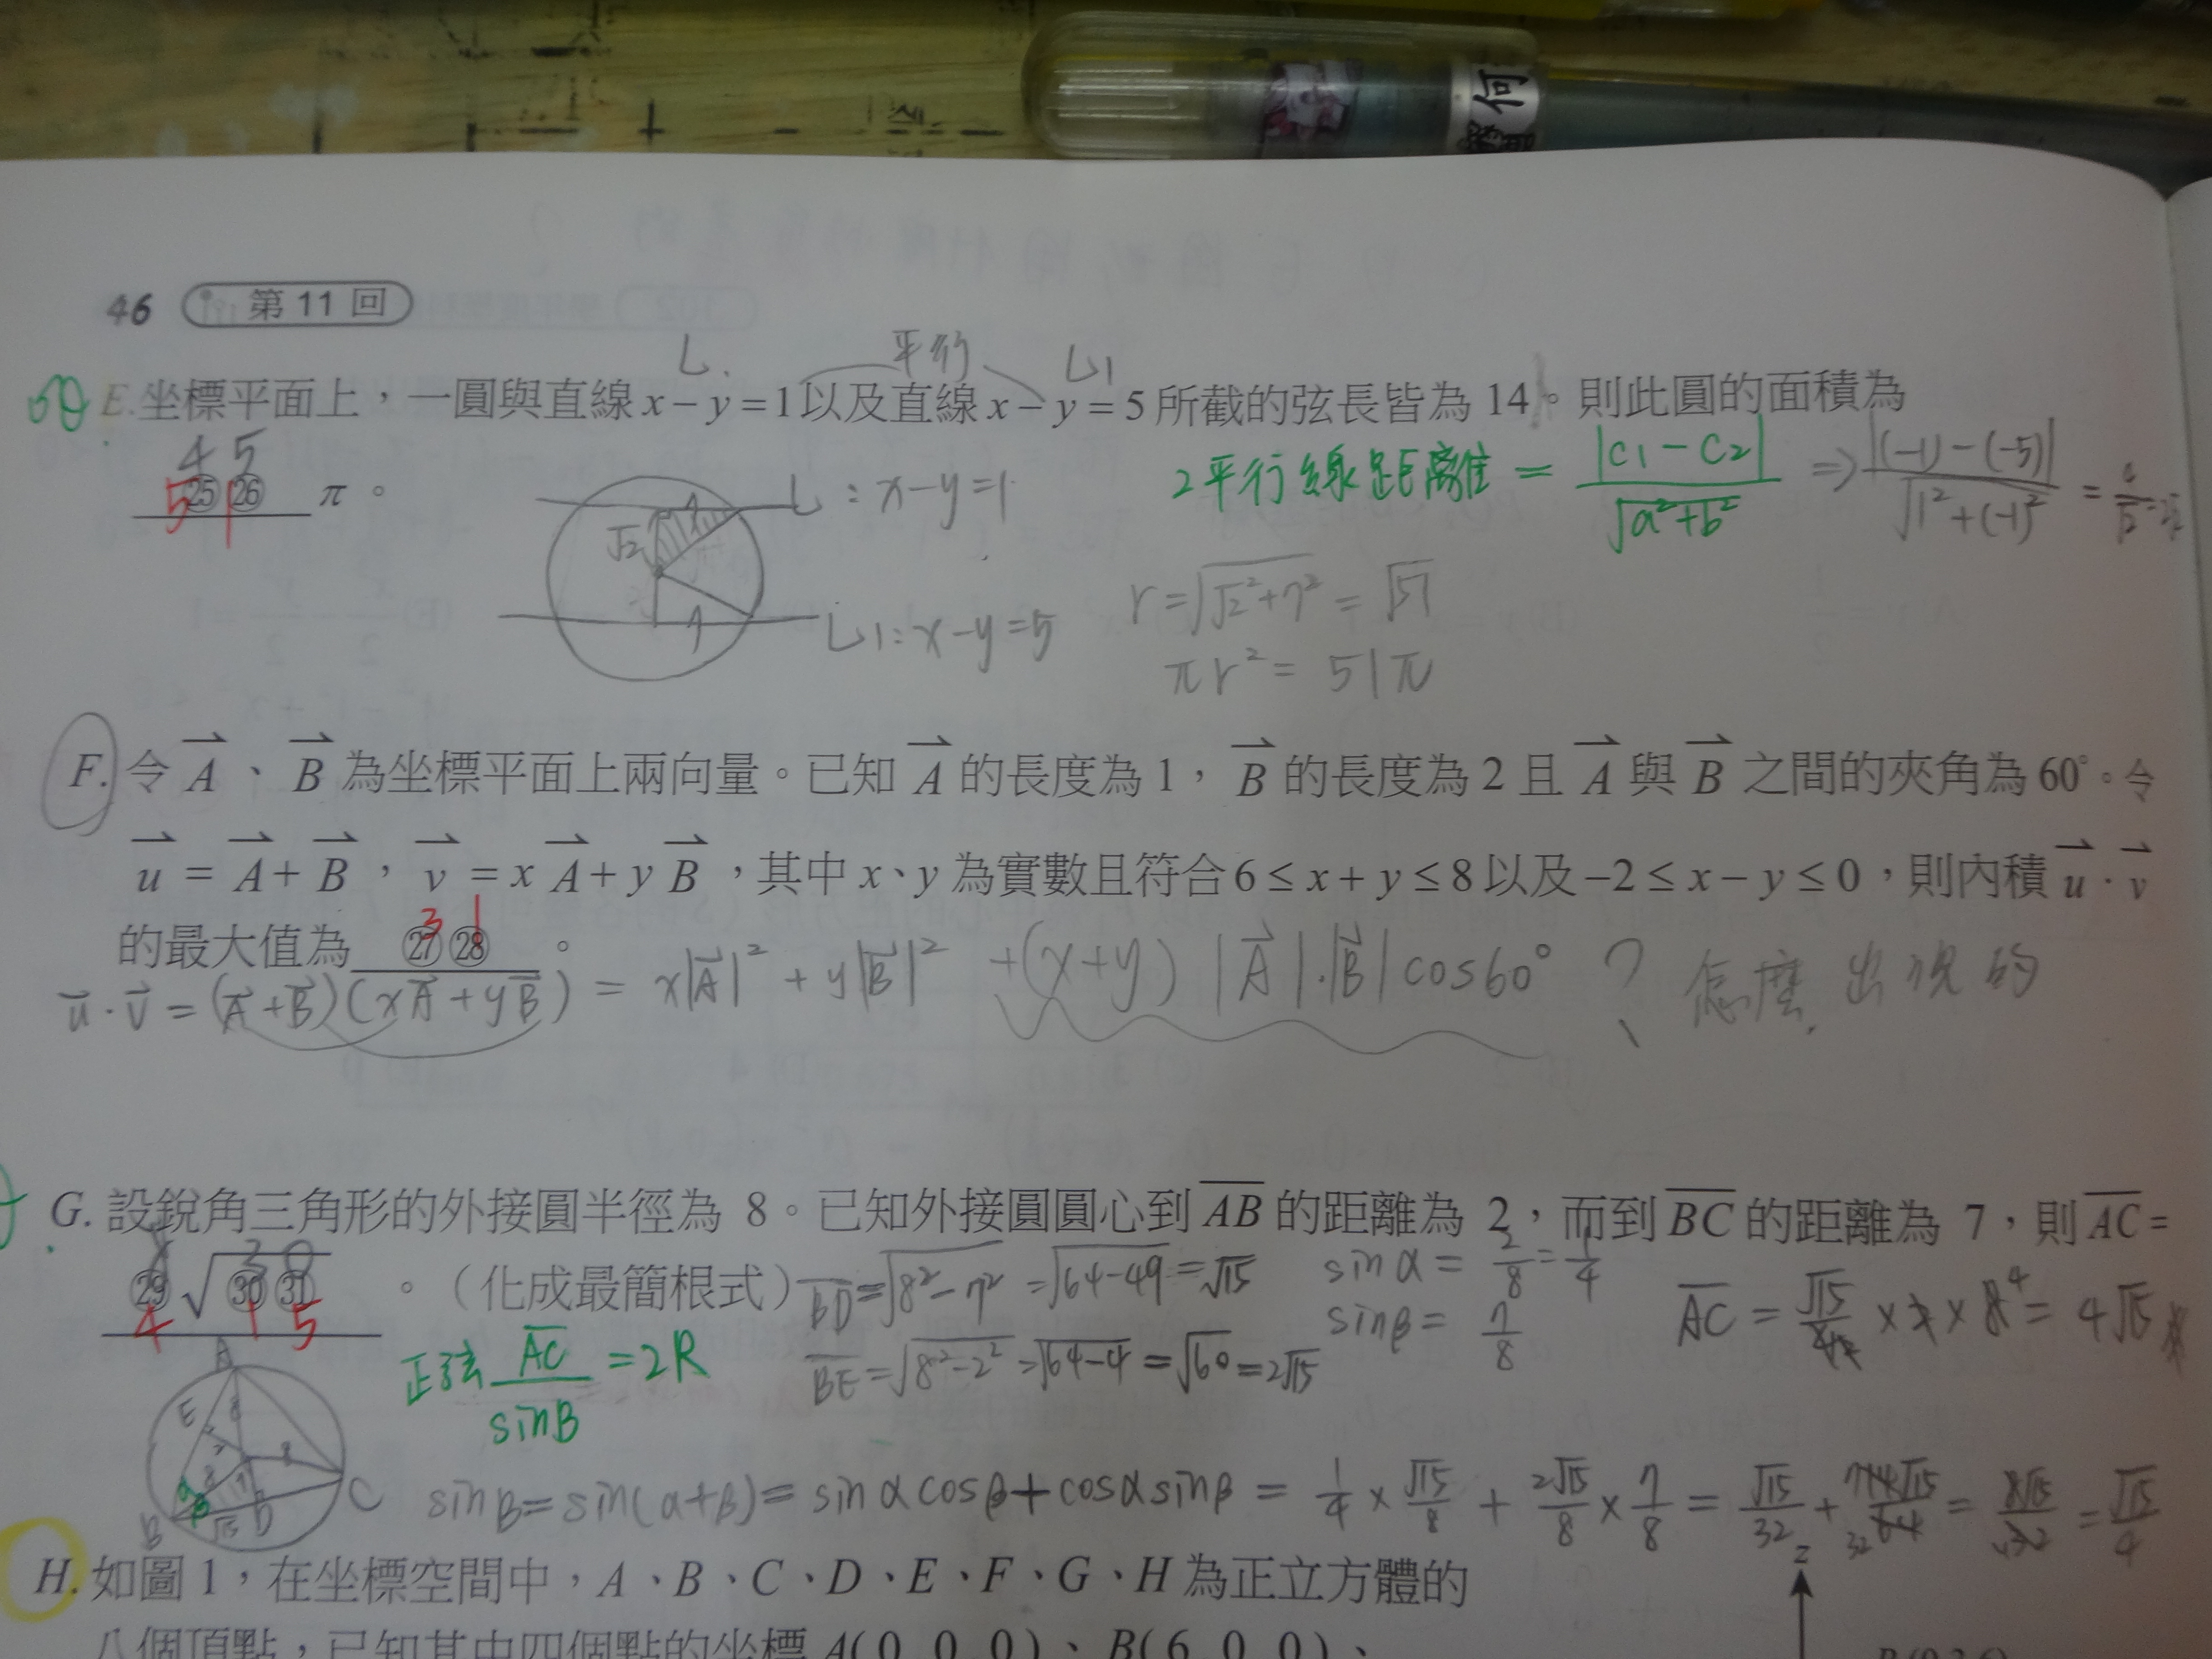 何
46 第 11 回
L. 平行 L1
E. 坐標平面上，一圓與直線 x－y＝1 以及直線 x－y＝5 所截的弦長皆為 14。則此圓的面積為
4 5
5 1
㉕㉖ π。
2平行線距離 = |C1 - C2| / √(a²+b²) ⇒ |(-1) - (-5)| / √(1²+(-1)²) =
√2 7 L : x-y=1
7 L1: x-y=5
r = √(√2²+7²) = √51
πr² = 51π
F. 令 A、B 為坐標平面上兩向量。已知 A 的長度為 1，B 的長度為 2 且 A 與 B 之間的夾角為 60°。令
u＝A＋B，v＝x A＋y B，其中 x、y 為實數且符合 6≤x＋y≤8 以及 −2≤x−y≤0，則內積 u·v
的最大值為 ㉗㉘。
3 1
u·v = (A+B)(xA+yB) = x|A|² + y|B|² + (x+y)|A|·|B|cos60° ? 怎麼出現的
G. 設銳角三角形的外接圓半徑為 8。已知外接圓圓心到 AB 的距離為 2，而到 BC 的距離為 7，則 AC＝
㉙√㉚㉛。（化成最簡根式）
4 1 5
BD = √(8²-7²) = √(64-49) = √15
BE = √(8²-2²) = √(64-4) = √60 = 2√15
sinα = 2/8 = 1/4
sinβ = 7/8
正弦 AC/sinB = 2R
A E 8 B D C √15
sinB = sin(α+β) = sinαcosβ + cosαsinβ = 1/4 × √15/8 + 2√15/8 × 7/8 = √15/32 +
= √15/4
H. 如圖 1，在坐標空間中，A、B、C、D、E、F、G、H 為正立方體的
z
八個頂點，已知其中四個點的坐標 A(0,0,0)、B(6,0,0)、